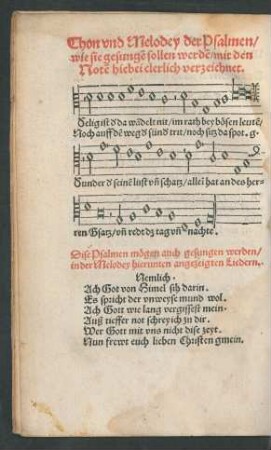 Thon vnd Melodey der Psalmen/
wie sie gesungē sollen werdē/mit den
Notē hiebei clerlich verzeichnet.
Selig ist ð da wādelt nit/im rath bey bösen leutē/
Noch auff dē weg ð sünd trit/noch sitz da spot. g.
Sunder ð seinē lust vn̄ schatz/alleī hat an des her-
ren Gsatz/vn̄ redt dz tag vn̄ nachte.
Dise Psalmen mögen auch gesungen werden/
in der Melodey hierunten angezeigten Liedern.
Nemlich.
Ach Got von Himel sih darin.
Es spricht der vnweyse mund wol.
Ach Gott wie lang vergissest mein.
Auß tieffer not schrey ich zu dir.
Wer Gott mit vns nicht dise zeyt.
Nun frewt euch lieben Christen gmein.